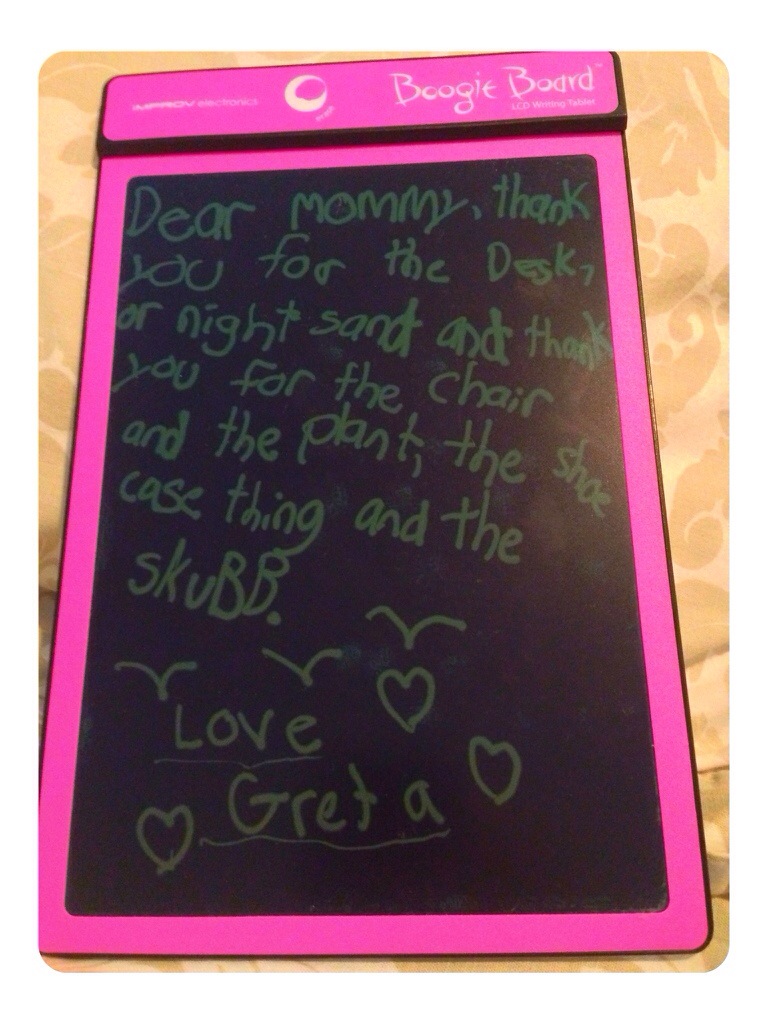 IMPROV electronics
erase
Boogie Board™
LCD Writing Tablet
Dear mommy, thank
you for the Desk,
or night sand and thank
you for the chair
and the plant, the shoe
case thing and the
skuBB.
Love
Greta